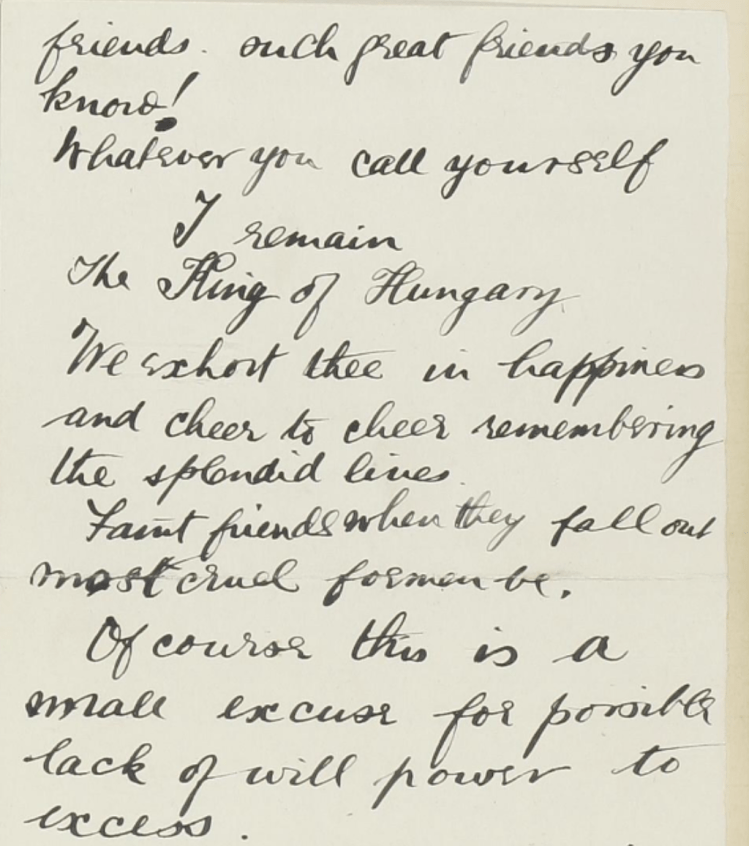 friends. such great friends you
know!
Whatever you call yourself
I remain
The King of Hungary
We exhort thee in happiness
and cheer to cheer remembering
the splendid lines.
Faint friends when they fall out
most cruel foemen be.
Of course this is a
small excuse for possible
lack of will power to
excess.